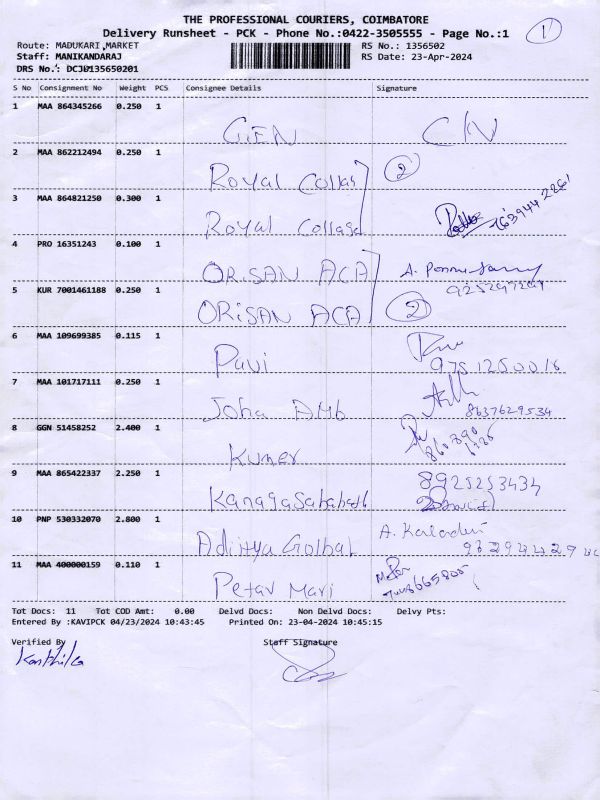 THE PROFESSIONAL COURIERS, COIMBATORE
Delivery Runsheet - PCK - Phone No.:0422-3505555 - Page No.:1
1
Route: MADUKARI MARKET
RS No.: 1356502
Staff: MANIKANDARAJ
RS Date: 23-Apr-2024
DRS No.: DCJ0135650201
S No Consignment No Weight PCS Consignee Details Signature
1 MAA 864345266 0.250 1
GEN
2 MAA 862212494 0.250 1
Royal Collas 2
3 MAA 864821250 0.300 1
Royal Collasa
4 PRO 16351243 0.100 1
ORiSAN ACA
5 KUR 7001461188 0.250 1
ORiSAN ACA 2
6 MAA 109699385 0.115 1
Pavi
7 MAA 101717111 0.250 1
Joha 8637629534
8 GGN 51458252 2.400 1
Kumer
9 MAA 865422337 2.250 1
8925253434
10 PNP 530332070 2.800 1
Adithya
11 MAA 400000159 0.110 1
Petar Mari
Tot Docs: 11 Tot COD Amt: 0.00 Delvd Docs: Non Delvd Docs: Delvy Pts:
Entered By :KAVIPCK 04/23/2024 10:43:45 Printed On: 23-04-2024 10:45:15
Verified By Staff Signature